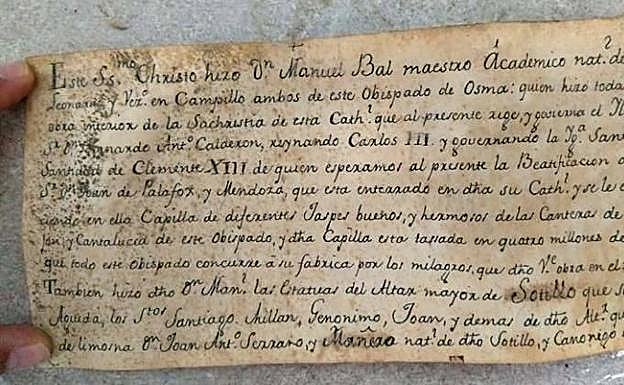 Este SS.mo Christo hizo Dn. Manuel Bal maestro Académico nat.l de
y Vez.o en Campillo ambos de este Obispado de Osma: quien hizo toda
obra interior de la Sachristia de esta Cath.l que al presente rige, y govierna el Il
Sr. Dn. Bernardo Ant.o Calderon, reynando Carlos III. y governando la Yg.a San
Santidad de Clemente XIII de quien esperamos al presente la Beatificacion
Sr. Dn. Joan de Palafox, y Mendoza, que esta enterrado en dha su Cath.l, y se le e
en ella Capilla de diferentes Jaspes buenos, y hermosos de las Canteras de
y Cantalucia de este Obispado, y dha Capilla esta tassada en quatro millones de
que todo este Obispado concurre à su fabrica por los milagros, que dho Ve.e obra en el
Tambien hizo dho Dn. Man.l las Estatuas del Altar mayor de Sotillo que s
Agueda, los Stos Santiago, Millan, Geronimo, Joan, y demas de dho Alt.r qu
de limosna Dn. Joan Ant.o Serrano, y Mañero nat.l de dho Sotillo, y Canonigo